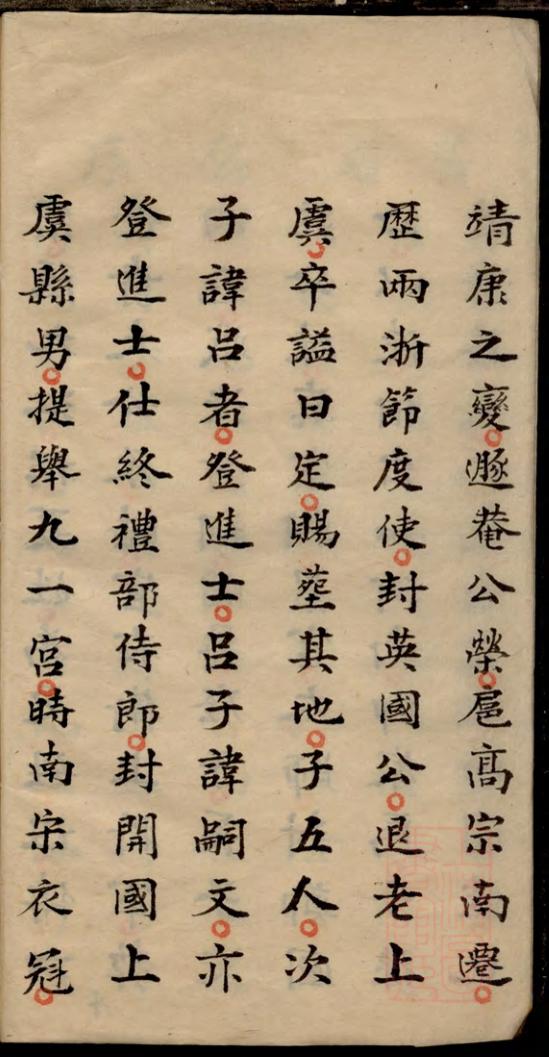 靖康之變遯菴公榮扈髙宗南遷
歴兩浙節度使封英國公退老上
虞卒謚曰定賜塟其地子五人次
子諱吕者登進士吕子諱嗣文亦
登進士仕終禮部侍郎封開國上
虞縣男提舉九一宫時南宋衣冠